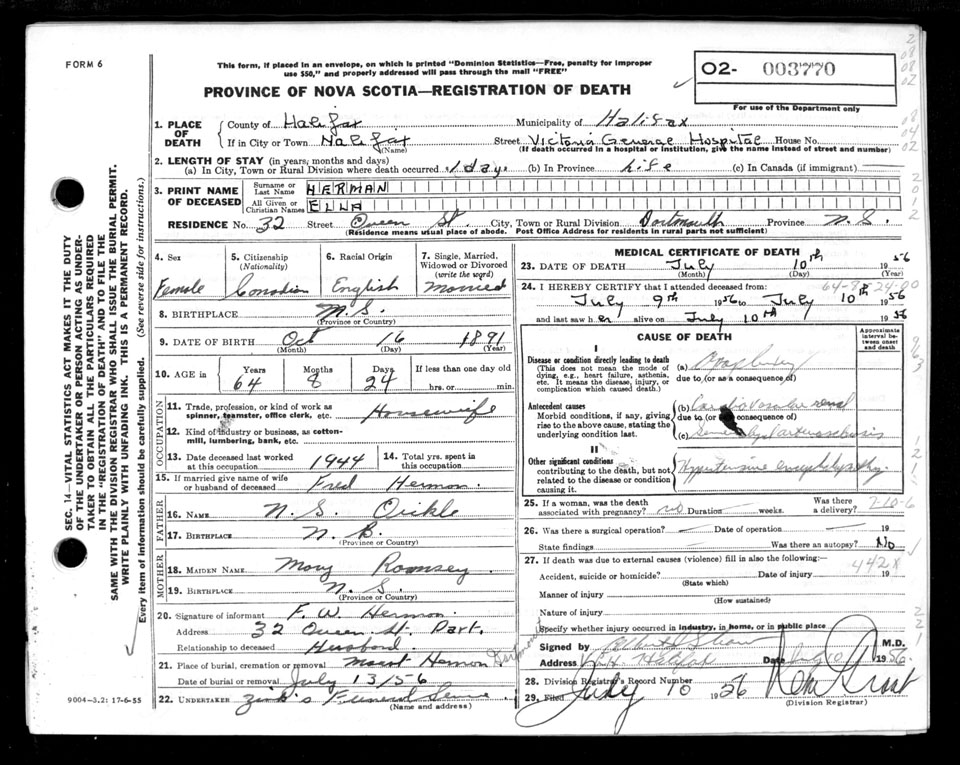 FORM 6
This form, if placed in an envelope, on which is printed "Dominion Statistics—Free, penalty for improper
use $50," and properly addressed will pass through the mail "FREE"
02- 003770
PROVINCE OF NOVA SCOTIA—REGISTRATION OF DEATH
For use of the Department only
1. PLACE OF DEATH
County of Halifax Municipality of Halifax
If in City or Town Halifax (Name) Street Victoria General Hospital House No.
(If death occurred in a hospital or institution, give name instead of street and number)
2. LENGTH OF STAY (in years, months and days)
(a) In City, Town or Rural Division where death occurred 1 day (b) In Province Life (c) In Canada (if immigrant)
3. PRINT NAME OF DECEASED
Surname or Last Name HERMAN
All Given or Christian Names ELLA
RESIDENCE No. 32 Street Queen St. City, Town or Rural Division Dartmouth Province N.S.
(Residence means usual place of abode. Post Office Address for residents in rural parts not sufficient)
4. Sex
Female
5. Citizenship (Nationality)
Canadian
6. Racial Origin
English
7. Single, Married, Widowed or Divorced (write the word)
Married
8. BIRTHPLACE N.S.
(Province or Country)
9. DATE OF BIRTH Oct 16 1891
(Month) (Day) (Year)
10. AGE in Years Months Days If less than one day
64 8 24 hrs. or min.
OCCUPATION
11. Trade, profession, or kind of work as spinner, teamster, office clerk, etc. Housewife
12. Kind of industry or business, as cotton-mill, lumbering, bank, etc.
13. Date deceased last worked at this occupation 1944
14. Total yrs. spent in this occupation
15. If married give name of wife or husband of deceased Fred Herman
FATHER
16. NAME N. S. Oickle
17. BIRTHPLACE N. B.
(Province or Country)
MOTHER
18. MAIDEN NAME Mary Ramsey
19. BIRTHPLACE N.S.
(Province or Country)
20. Signature of informant F. W. Herman
Address 32 Queen St. Dart.
Relationship to deceased Husband
21. Place of burial, cremation or removal Mount Hermon Dartmouth
Date of burial or removal July 13/56
22. UNDERTAKER Zink's Funeral
(Name and address)
MEDICAL CERTIFICATE OF DEATH
23. DATE OF DEATH July 10th 1956
(Month) (Day) (Year)
64-8-24-00
24. I HEREBY CERTIFY that I attended deceased from:
July 9th 1956 to July 10th 1956
and last saw her alive on July 10th 1956
CAUSE OF DEATH
Approximate interval between onset and death
I
Disease or condition directly leading to death
(This does not mean the mode of dying, e.g., heart failure, asthenia, etc. It means the disease, injury, or complication which caused death.)
(a) Apoplexy
due to (or as a consequence of)
Antecedent causes
Morbid conditions, if any, giving rise to the above cause, stating the underlying condition last.
(b) Cardiovascular renal
due to (or as a consequence of)
(c) arteriosclerosis
II
Other significant conditions
contributing to the death, but not related to the disease or condition causing it.
Hypertensive encephalopathy
25. If a woman, was the death associated with pregnancy? no Duration weeks. Was there a delivery?
7-10-6
26. Was there a surgical operation? Date of operation 19
State findings Was there an autopsy? No
27. If death was due to external causes (violence) fill in also the following:
442X
Accident, suicide or homicide? Date of injury 19
(State which)
Manner of injury
(How sustained)
Nature of injury
Specify whether injury occurred in industry, in home, or in public place
Signed by M.D.
Address Halifax Date July 10 1956
28. Division Registrar's Record Number
29. Filed July 10 1956
(Division Registrar)
SEC. 14—VITAL STATISTICS ACT MAKES IT THE DUTY
OF THE UNDERTAKER OR PERSON ACTING AS UNDER-
TAKER TO OBTAIN ALL THE PARTICULARS REQUIRED
IN THE "REGISTRATION OF DEATH" AND TO FILE THE
SAME WITH THE DIVISION REGISTRAR WHO SHALL ISSUE THE BURIAL PERMIT.
WRITE PLAINLY WITH UNFADING INK. THIS IS A PERMANENT RECORD.
Every item of information should be carefully supplied. (See reverse side for instructions.)
9004—3.2: 17-6-55